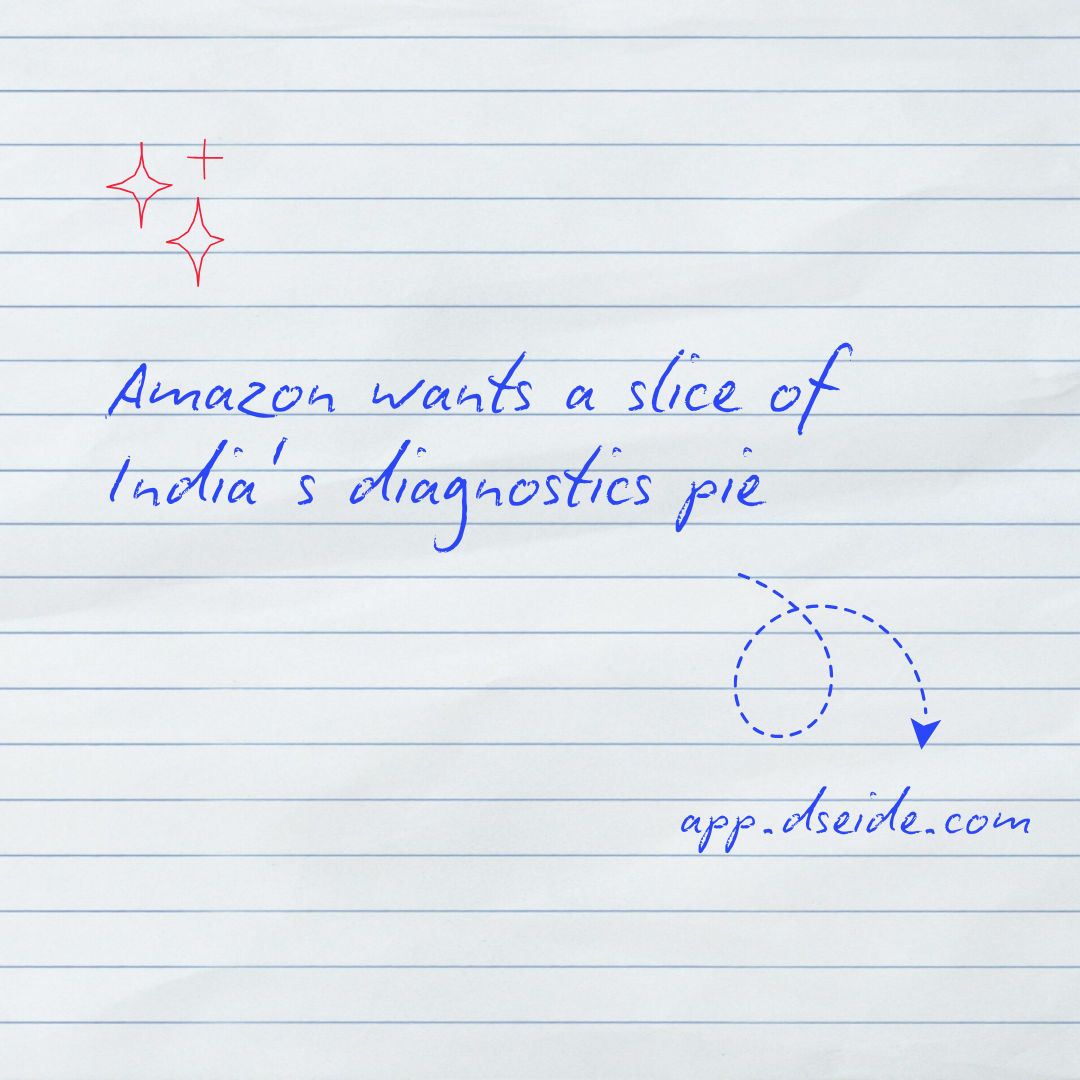 Amazon wants a slice of
India's diagnostics pie
app.dseide.com